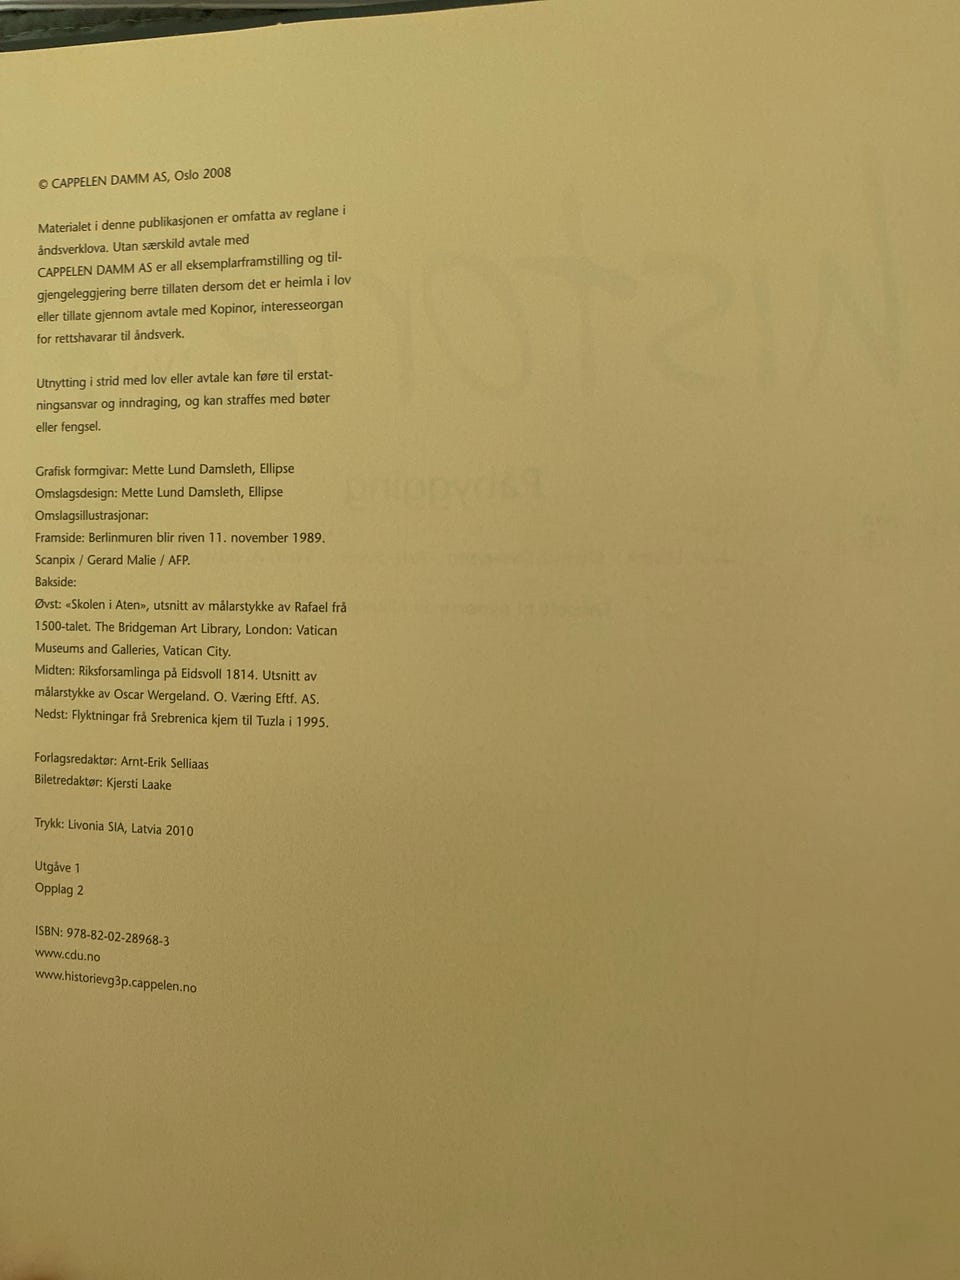 © CAPPELEN DAMM AS, Oslo 2008
Materialet i denne publikasjonen er omfatta av reglane i
åndsverklova. Utan særskild avtale med
CAPPELEN DAMM AS er all eksemplarframstilling og til-
gjengeleggjering berre tillaten dersom det er heimla i lov
eller tillate gjennom avtale med Kopinor, interesseorgan
for rettshavarar til åndsverk.
Utnytting i strid med lov eller avtale kan føre til erstat-
ningsansvar og inndraging, og kan straffes med bøter
eller fengsel.
Grafisk formgivar: Mette Lund Damsleth, Ellipse
Omslagsdesign: Mette Lund Damsleth, Ellipse
Omslagsillustrasjonar:
Framside: Berlinmuren blir riven 11. november 1989.
Scanpix / Gerard Malie / AFP.
Bakside:
Øvst: «Skolen i Aten», utsnitt av målarstykke av Rafael frå
1500-talet. The Bridgeman Art Library, London: Vatican
Museums and Galleries, Vatican City.
Midten: Riksforsamlinga på Eidsvoll 1814. Utsnitt av
målarstykke av Oscar Wergeland. O. Væring Eftf. AS.
Nedst: Flyktningar frå Srebrenica kjem til Tuzla i 1995.
Forlagsredaktør: Arnt-Erik Selliaas
Biletredaktør: Kjersti Laake
Trykk: Livonia SIA, Latvia 2010
Utgåve 1
Opplag 2
ISBN: 978-82-02-28968-3
www.cdu.no
www.historievg3p.cappelen.no
Påbygging